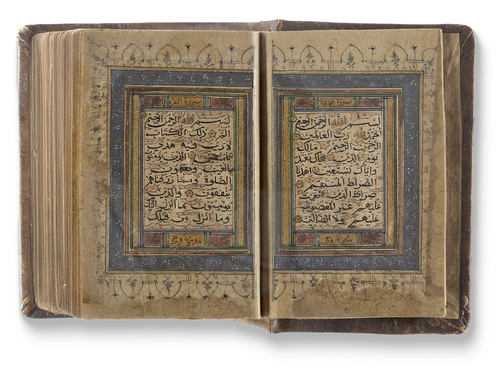 سورة الفاتحة
بسم الله الرحمن الرحيم
الحمد لله رب العالمين
الرحمن الرحيم مالك
يوم الدين اياك نعبد
واياك نستعين اهدنا
الصراط المستقيم
صراط الذين انعمت
عليهم غير المغضوب
عليهم ولا الضالين
سورة البقرة
بسم الله الرحمن الرحيم
الم ذلك الكتاب
لا ريب فيه هدى
للمتقين الذين يومنو
ن بالغيب ويقيمون
الصلوة ومما رزقناهم
ينفقون والذين
يومنون بما انزل اليك
وما انزل من قبلك